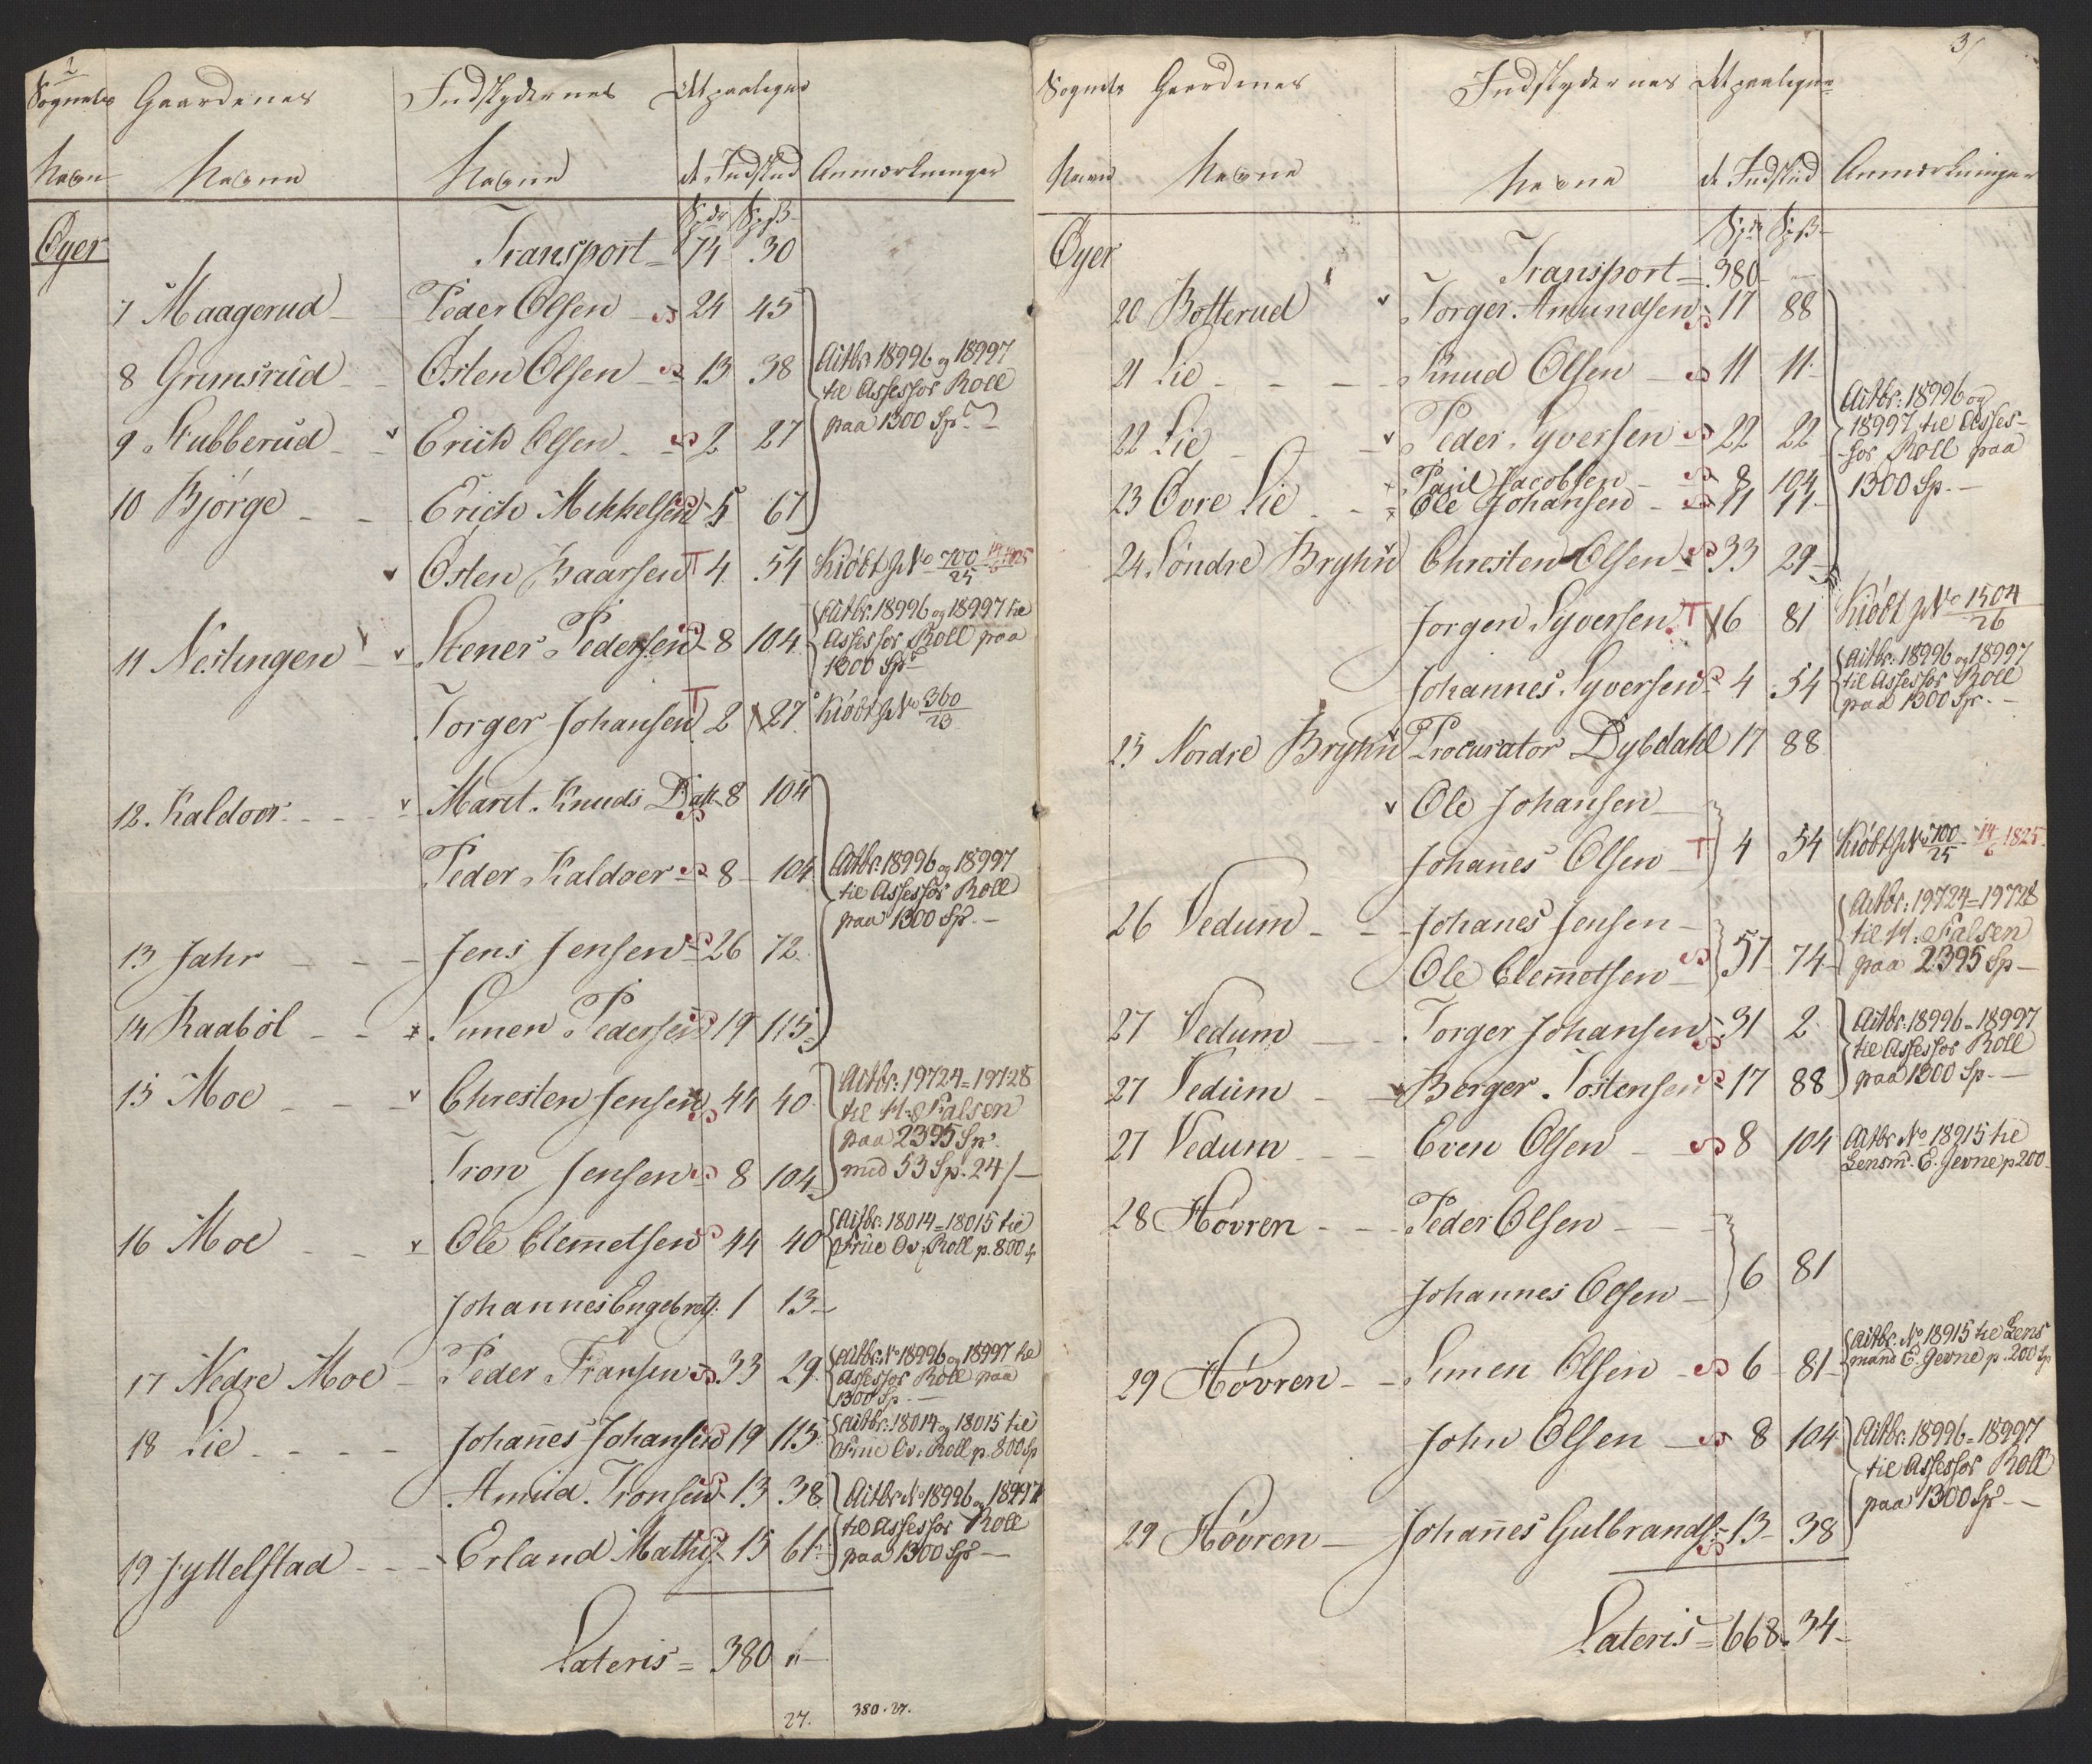 2
Sognets Gaardenes Indskydernes Det paaligne
Navn Navne Navne de Indskud Anmærkninger
Øyer Transport = 74 30
7 Maagerud Peder Olsen 24 45
8 Grimsrud Østen Olsen 13 38
Aitbr: 18996 og 18997
til Assessor Roll
paa 1300 Sp.
9 Stubberud Erich Olsen 2 27
10 Bjørge Erich Mekkelsen 5 67
Østen Baarsen T 4 54 Kiøbt No 700/25 14/6 1825
11 Neslingen Stener Pedersen 8 104
Aitbr. 18996 og 18997 til
Assessor Roll paa
1300 Sp.
Torger Johansen T 2 27 Kiøbt No 360/23
12. Kaldoor Marit Knuds Datt. 8 104
Peder Kaldoer 8 104
Aitbr. 18996 og 18997
til Assessor Roll
paa 1300 Sp.
13 Jahr Jens Jensen 26 72
14 Raabøl Simen Pedersen 19 115
15 Moe Christen Jensen 44 40
Aitbr: 19724 = 19728
til H: Falsen
paa 2395 Sp.
med 53 Sp. 24 /
Tron Jensen 8 104
16 Moe Ole Clemetsen 44 40
Aitbr: 18014 = 18015 til
Frue Ov: Roll p. 800 Sp
Johannes Engebrets: 1 13
17 Nedre Moe Peder Fransen 33 29
Aitbr: No 18996 og 18997 til
Assessor Roll paa
1300 Sp.
18 Lie Johanes Johansen 19 115
Aitbr: 18014 og 18015 til
Frue Ov: Roll p. 800 Sp
Amund Tronsen 13 38
Aitbr No 18996 og 18997
til Assessor Roll
paa 1300 Sp
19 Jyttelstad Erland Mathis. 15 61
Lateris = 380
27. 380. 27.
3/
Sognets Gaardenes Indskydernes Det paaligne
Navn Navne Navne de Indskud Anmærkninger
Øyer Transport = 380
20 Botterud Torger Amundsen 17 88
21 Lie Knud Olsen 11 11
22 Lie Peder Syversen 22 22
Aitbr: 18996 og
18997 til Asses-
sor Roll paa
1300 Sp.
23 Øvre Lie Paul Jacobsen 8 104
Ole Johansen 11 11
24 Søndre Bryhn Christen Olsen 33 29
Jørgen Syversen T 6 81 Kiøbt No 1504/26
Johannes Syversen 4 54
Aitbr: 18996 og 18997
til Assessor Roll
paa 1300 Sp.
25 Nordre Bryhn Procurator Dybdahl 17 88
Ole Johansen
Johanes Olsen T 4 54 Kiøbt No 700/25 14/6 1825
26 Vedum Johanes Jensen
Ole Clemetsen 57 74
Aitbr: 19724 = 19728
til H: Falsen
paa 2395 Sp
27 Vedum Torger Johansen 31 2
Aitbr: 18996 = 18997
til Assessor Roll
paa 1300 Sp.
27 Vedum Berger Tostensen 17 88
27 Vedum Even Olsen 8 104
Aitbr No 18915 til
Lensm. E. Jevne p 200
28 Høvren Peder Olsen
Johannes Olsen 6 81
29 Høvren Simen Olsen 6 81
Aitbr. No 18915 til Lens
mand E. Jevne p. 200 Sp
John Olsen 8 104
Aitbr. 18996 = 18997
til Assessor Roll
paa 1300 Sp
29 Høvren Johanes Gulbrands. 13 38
Lateris = 668. 34